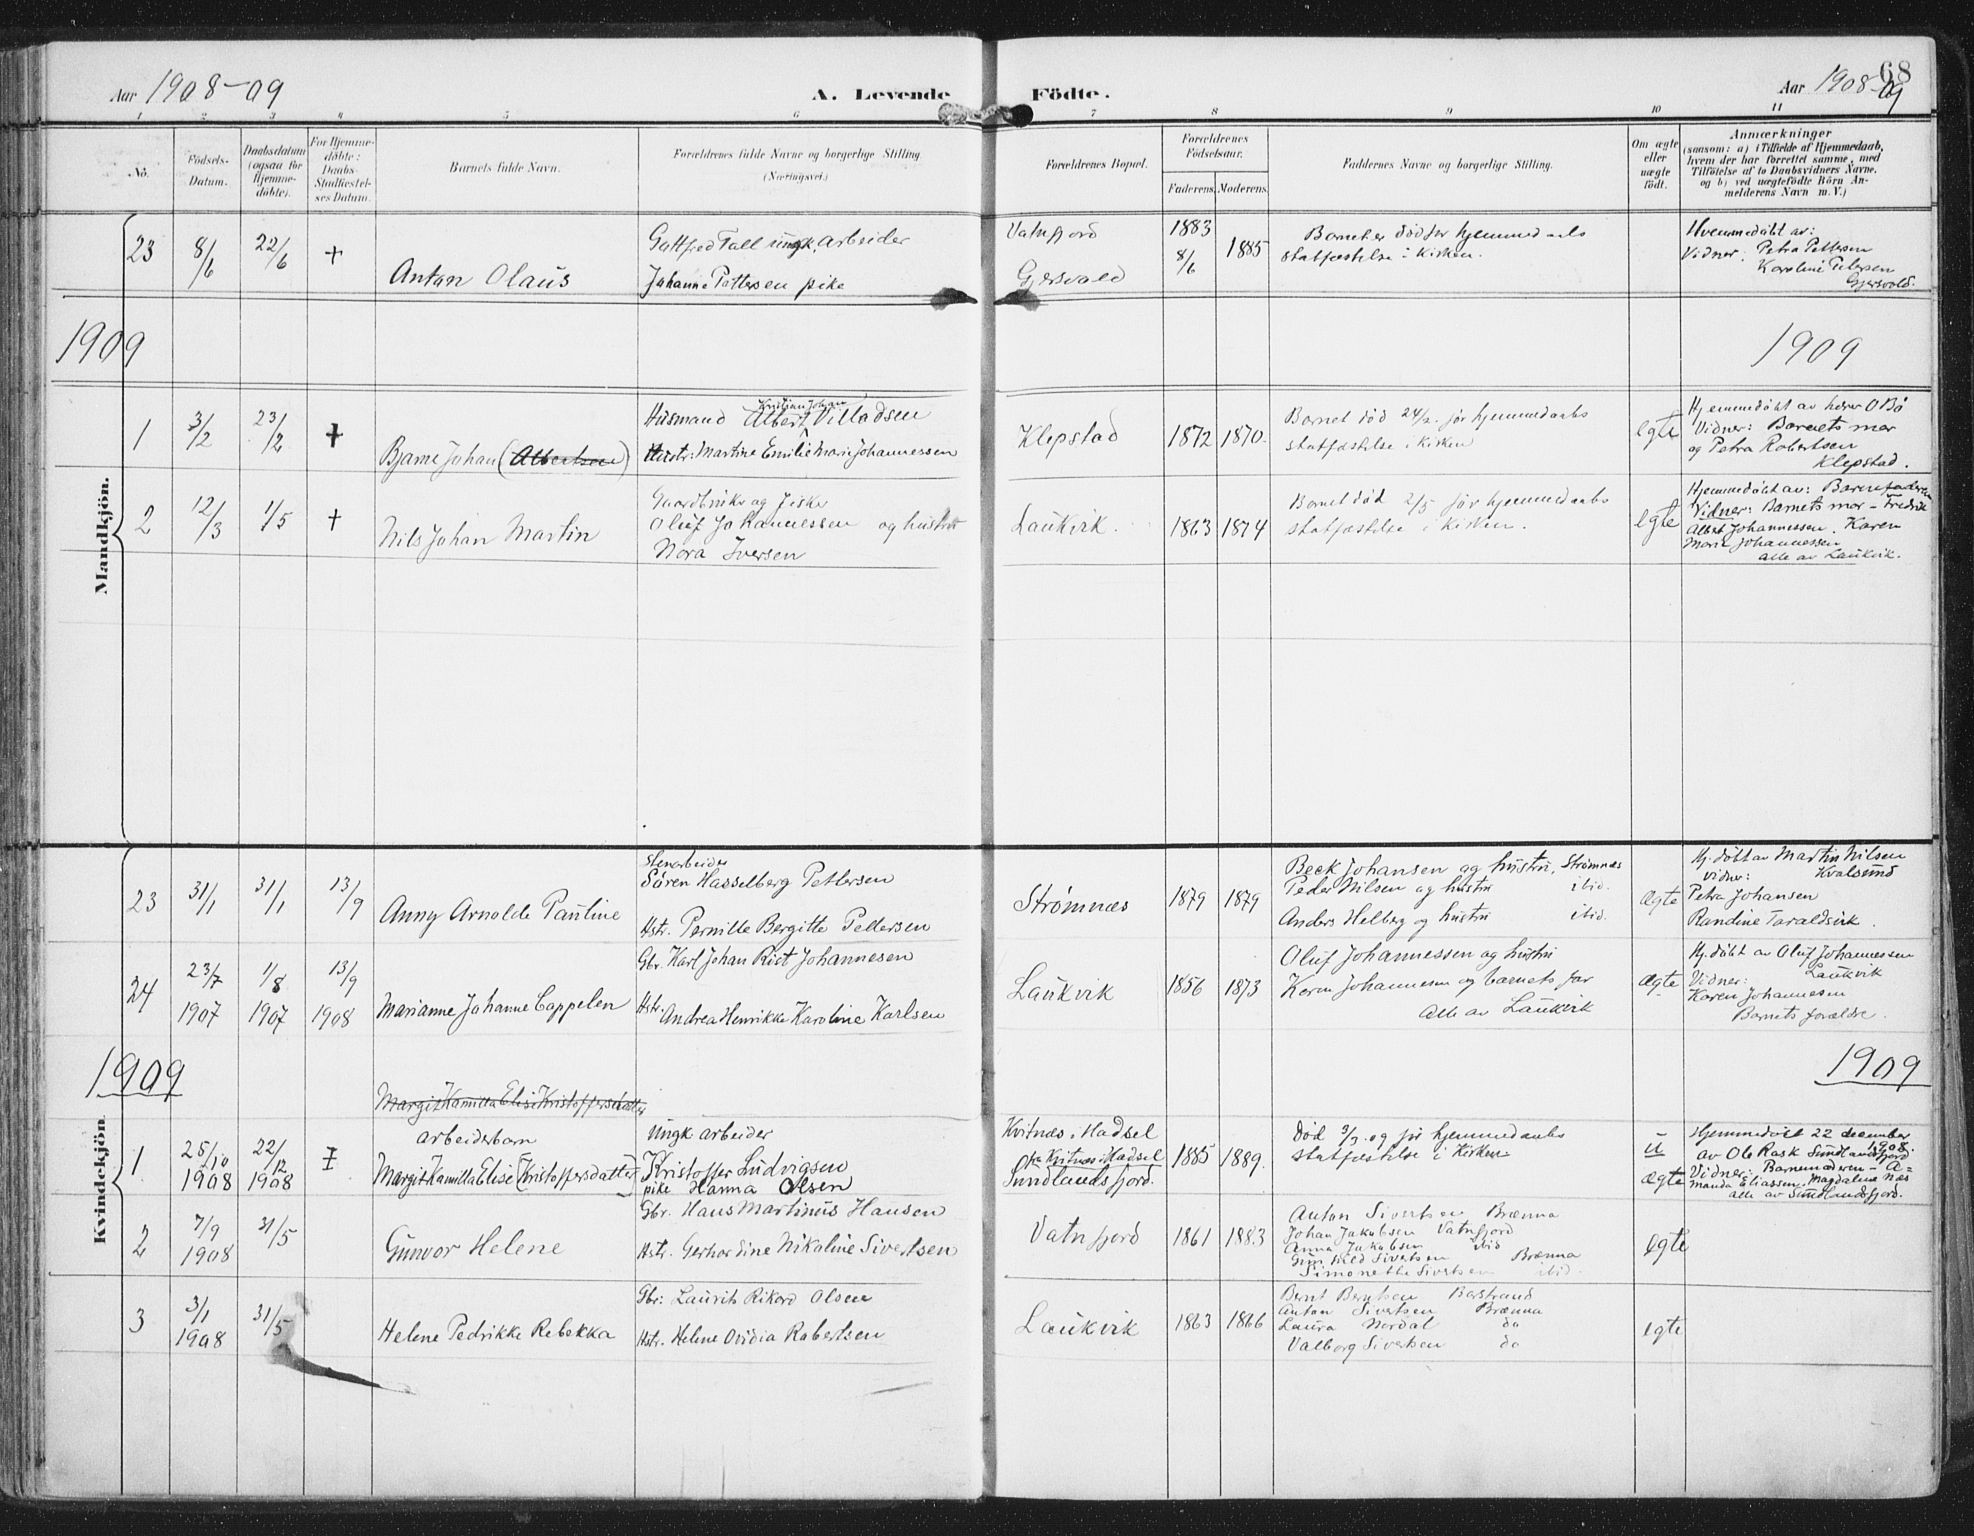 Aar 1908-09
A. Levende Födte.
Aar 1908-09
68
1 2 3 4 5 6 7 8 9 10 11
No.
Födsels-
Datum.
Daabsdatum
(ogsaa for
Hjemme-
döbte).
For Hjemme-
döbte:
Daabs-
Stadfæstel-
ses Datum.
Barnets fulde Navn.
Forældrenes fulde Navne og borgerlige Stilling.
(Næringsvei.)
Forældrenes Bopæl.
Forældrenes
Födselsaar.
Faderens. Moderens.
Faddernes Navne og borgerlige Stilling.
Om ægte
eller
uægte
födt.
Anmærkninger
(saasom: a) i Tilfælde af Hjemmedaab,
hvem der har forrettet samme, med
Tilföielse af to Daabsvidners Navne,
og b) ved uægtefödte Börn An-
melderens Navn m. V.)
Mandkjön.
23
8/6
22/6
+
Anton Olaus
ungk. Arbeider
Johanne Pettersen pike
Vatnfjord
Gjersvold
1883
8/6
1885
Barnet er død før hjemmedaabs
statfæstelse i kirken.
Hjemmedøbt av:
Vidner: Petra Pettersen
Karoline Petersen
Gjersvold.
1909
1909
1
3/2
23/2
+
Bjarne Johan (Albertsen)
Kristian Johan
Husmand Albert Villadsen
Hustr: Martine Emilie Marie Johannessen
Klepstad
1872
1870.
Barnet død 24/2. før hjemmedaabs
statfæstelse i kirken
egte
Hjemmedøbt av lærer O Bø
Vidner: Barnets mor
og Petra Robertsen
Klepstad.
2
12/3
1/5
+
Nils Johan Martin
Gaardbruker og Fisker
Oluf Johannessen og hustru
Nora Iversen
Laukvik.
1863
1874
Barnet død 2/5 før hjemmedaabs
statfæstelse i kirken.
egte
Hjemmedøbt av: Barnefaderen
Vidner: Barnets mor - Fredrik
Albert Johannessen. Karen
Marie Johannessen
alle av Laukvik.
Kvindekjön
23
31/1
31/1
13/9
Anny Arnolde Pauline
Stenarbeider
Sören Hasselberg Pettersen
Hstr. Pernille Bergitte Pettersen
Strømnæs
1879
1879
Beck Johansen og hustru, Strømnæs
Peder Nilsen og hustru ibid.
Anders Helberg og hustru ibid.
ægte
Hj. døbt av Martin Nilsen
Vidner: Kvalsund
Petra Johansen
Randine Taraldsvik.
24
23/7
1907
1/8
1907
13/9
1908
Marianne Johanne Cappelen
Gbr. Karl Johan Rist Johannesen
Hstr. Andrea Henrikke Karoline Karlsen
Laukvik
1856
1873
Oluf Johannessen og hustru
Karen Johannesen og barnets far
Alle av Laukvik
ægte
Hj. døbt av Oluf Johannessen
Laukvik
Vidner:
Karen Johannesen
Barnets forældre.
1909
1909
Margit Kamilla Elise Kristoffersdatter
1
25/10
1908
22/12
1908
Arbeiderbarn
Margit Kamilla Elise [Kristoffersdatter]
Ungk arbeider
Kristoffer Ludvigsen
pike Hanna Olsen
Kvitnæs i Hadsel
fra Kvitnæs i Hadsel
Sundlandsfjord.
1885
1889.
Død 3/3. og før hjemmedaabs
statfæstelse i Kirken
u
ægte
Hjemmedøbt 22 december
1908.
av Ole Rask Sundlandsfjord
Vidner: Barnemoderen - A=
manda Eliassen, Magdalena Næs
alle av Sundlandsfjord.
2
7/9
1908
31/5
Gunvor Helene
Gbr. Hans Martinus Hansen
Hstr. Gerhardine Nikaline Sivertsen
Vatnfjord
1861
1883
Anton Sivertsen Brænna
Johan Jakobsen Vatnfjord
Anna Jakobsen ibid
Gunhild Sivertsen Brænna
Simonette Sivertsen ibid.
egte
3
3/1
1908
31/5
Helene Pedrikke Rebekka
Gbr: Laurits Rikard Olsen
Hstr. Helene Ovidia Robertsen
Laukvik
1863
1866
Bernt Berntsen Borstrand
Anton Sivertsen Brænna
Laura Nordal do
Valborg Sivertsen do
egte